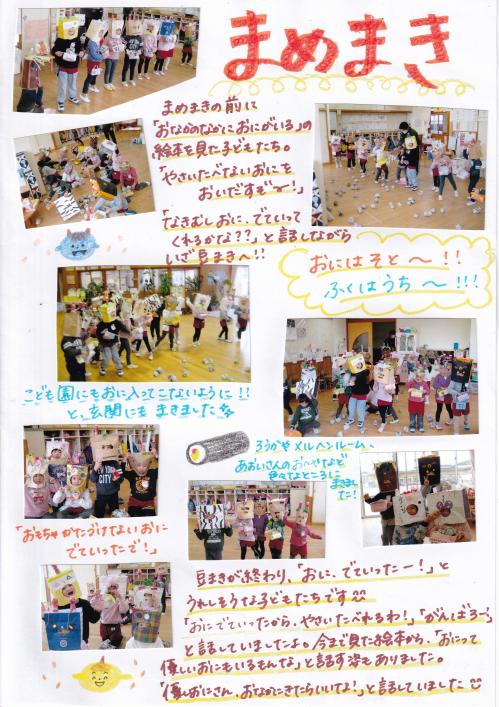 まめまき
まめまきの前に
「おなかのなかにおにがいる」の
絵本を見た子どもたち。
「やさいたべないおにを
おいだすぞー！」
「なきむしおに、でていって
くれるかな??」と話しながら
いざ豆まきへ!!
おにはそと〜!!
ふくはうち〜!!!
こども園にもおに入ってこないように!!
と、玄関にもまきました
ろうかやメルヘンルーム、
あおいさんのおへやなど
色々なところに
まきました!
「おもちゃかたづけないおに
でていったで!」
NEW YORK
CITY
豆まきが終わり、「おに、でていったー!」と
うれしそうな子どもたちです
「おにでていったから、やさいたべれるわ!」「がんばろ〜」
と話していましたよ。今まで見た絵本から、「おにって
優しいおにもいるもんな」と話す姿もありました。
「優しおにさん、おなかにきたらいいな!」と話していました